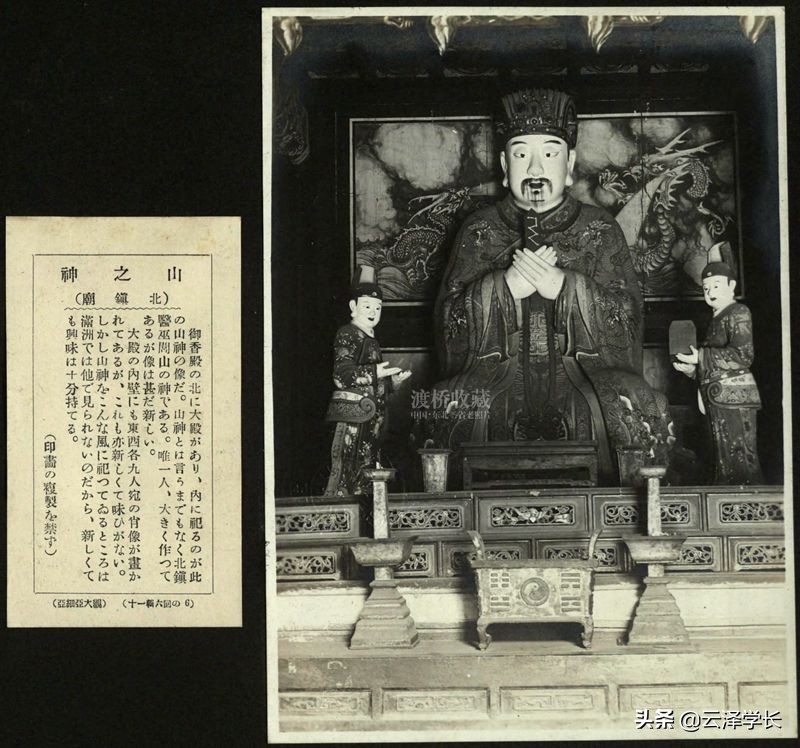 山之神
(北鎭廟)
御香殿の北に大殿があり、內に祀るのが此
の山神の像だ。山神とは言うまでもなく北鎭
醫巫閭山の神である。唯一人、大きく作つて
あるが像は甚だ新しい。
大殿の內壁にも東西各九人宛の肖像が畫か
れてあるが、これも亦新しくて味ひがない。
しかし山神をこんな風に祀つてゐるところは
滿洲では他で見られないのだから、新しくて
も興味は十分持てる。
(印畵の複製を禁ず)
(亞細亞大觀) (十一輯六回の6)
渡桥收藏
中国·东北 省老照片
头条 @云泽学长